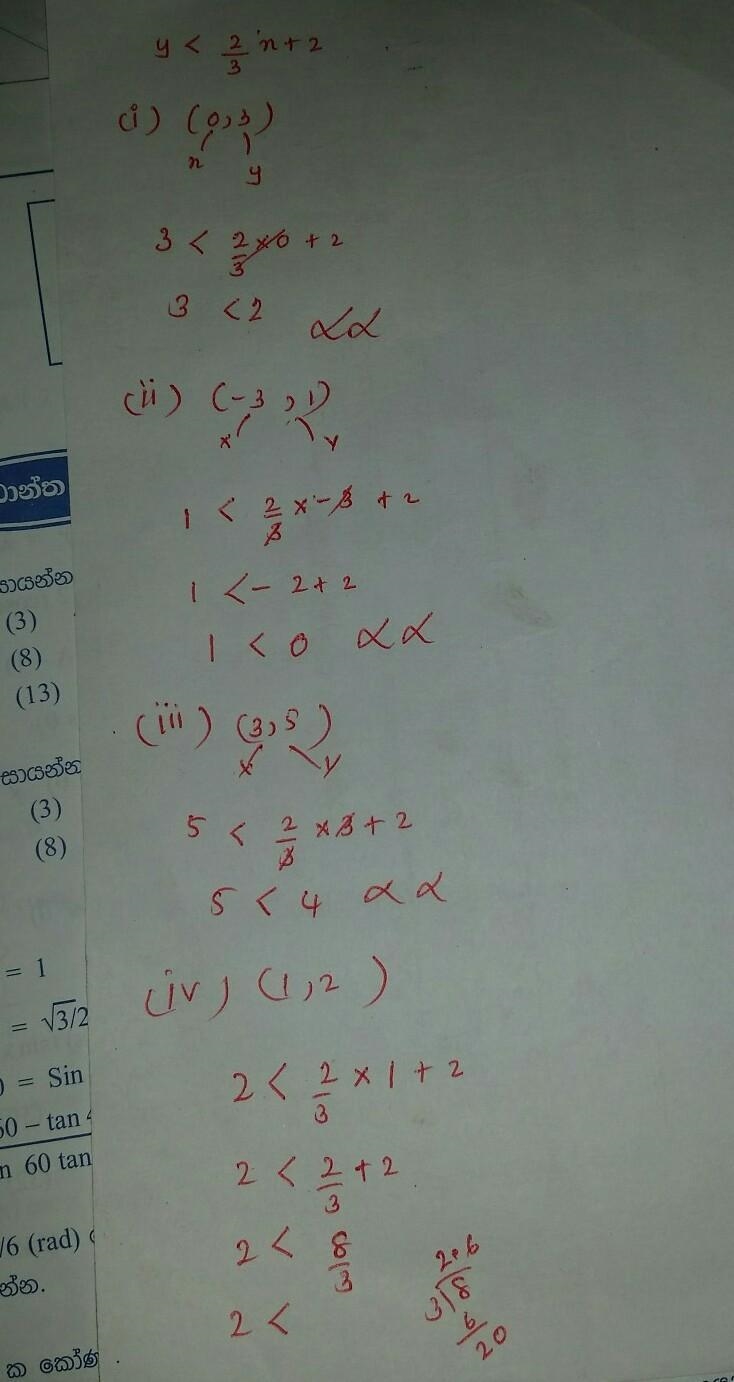 y < 2/3 x + 2
(i) (0,3)
x y
3 < 2/3 x 0 + 2
3 < 2 αα
(ii) (-3 , 1)
x y
1 < 2/3 x -3 + 2
1 < - 2 + 2
1 < 0 αα
(iii) (3,5)
x y
5 < 2/3 x 3 + 2
5 < 4 αα
(iv) (1,2)
2 < 2/3 x 1 + 2
2 < 2/3 + 2
2 < 8/3
2 <
2.6
3 8
6
20
සායන්න
(3)
(8)
(13)
සායන්න
(3)
(8)
= 1
= √3/2
) = Sin
60 – tan 4
n 60 tan
/6 (rad)
න්න.
ක කෝණ